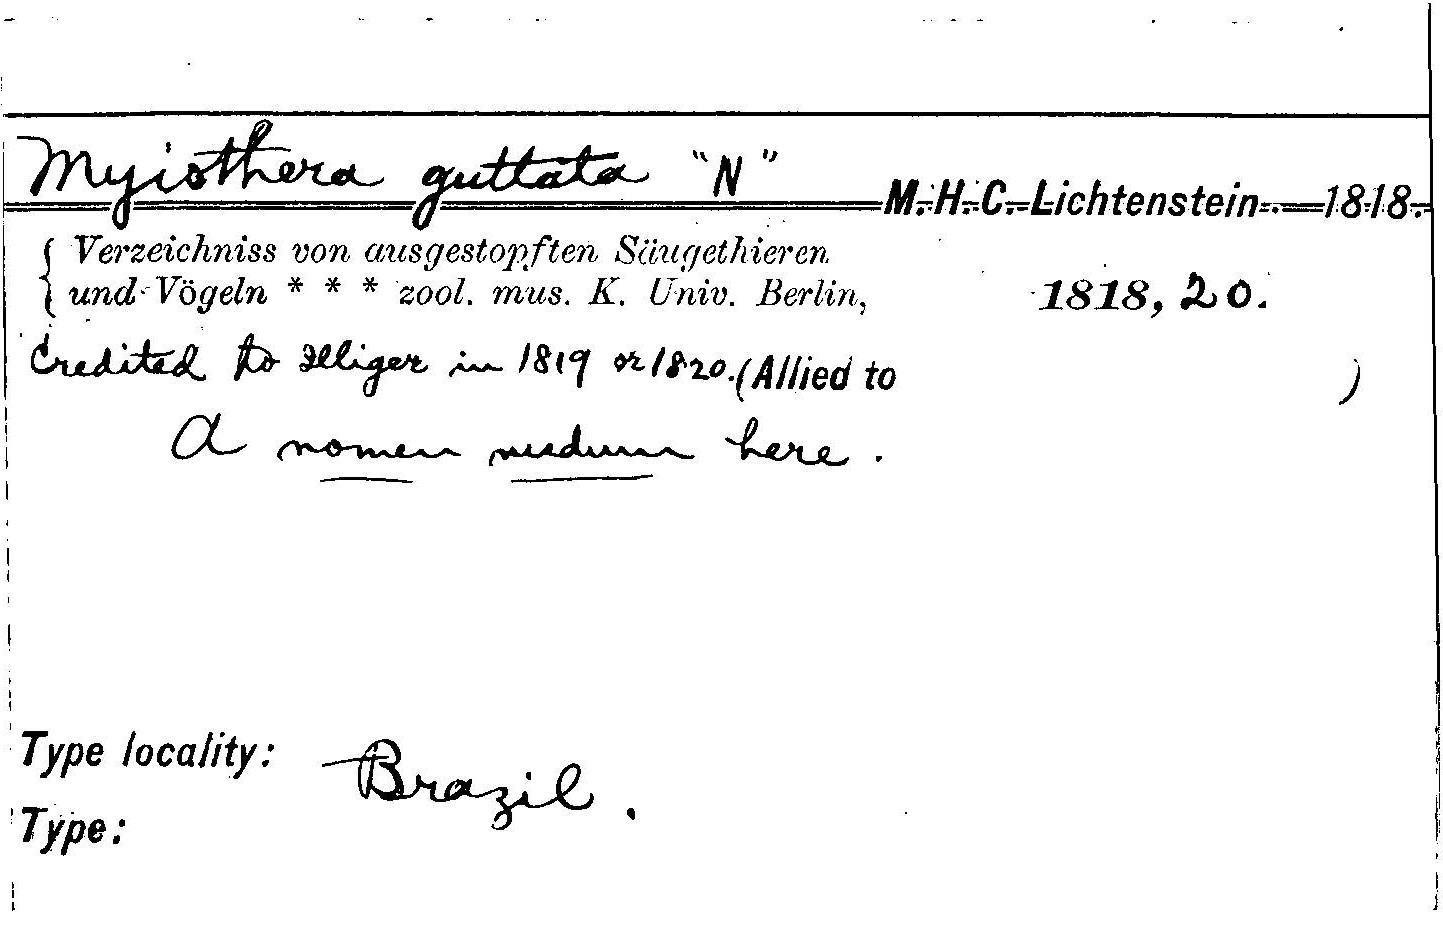 Myiothera guttata "N" M. H. C. Lichtenstein. 1818.
Verzeichniss von ausgestopften Säugethieren
und Vögeln * * * zool. mus. K. Univ. Berlin, 1818, 20.
Credited to Illiger in 1819 or 1820. (Allied to )
A nomen nudum here.
Type locality: Brazil.
Type: